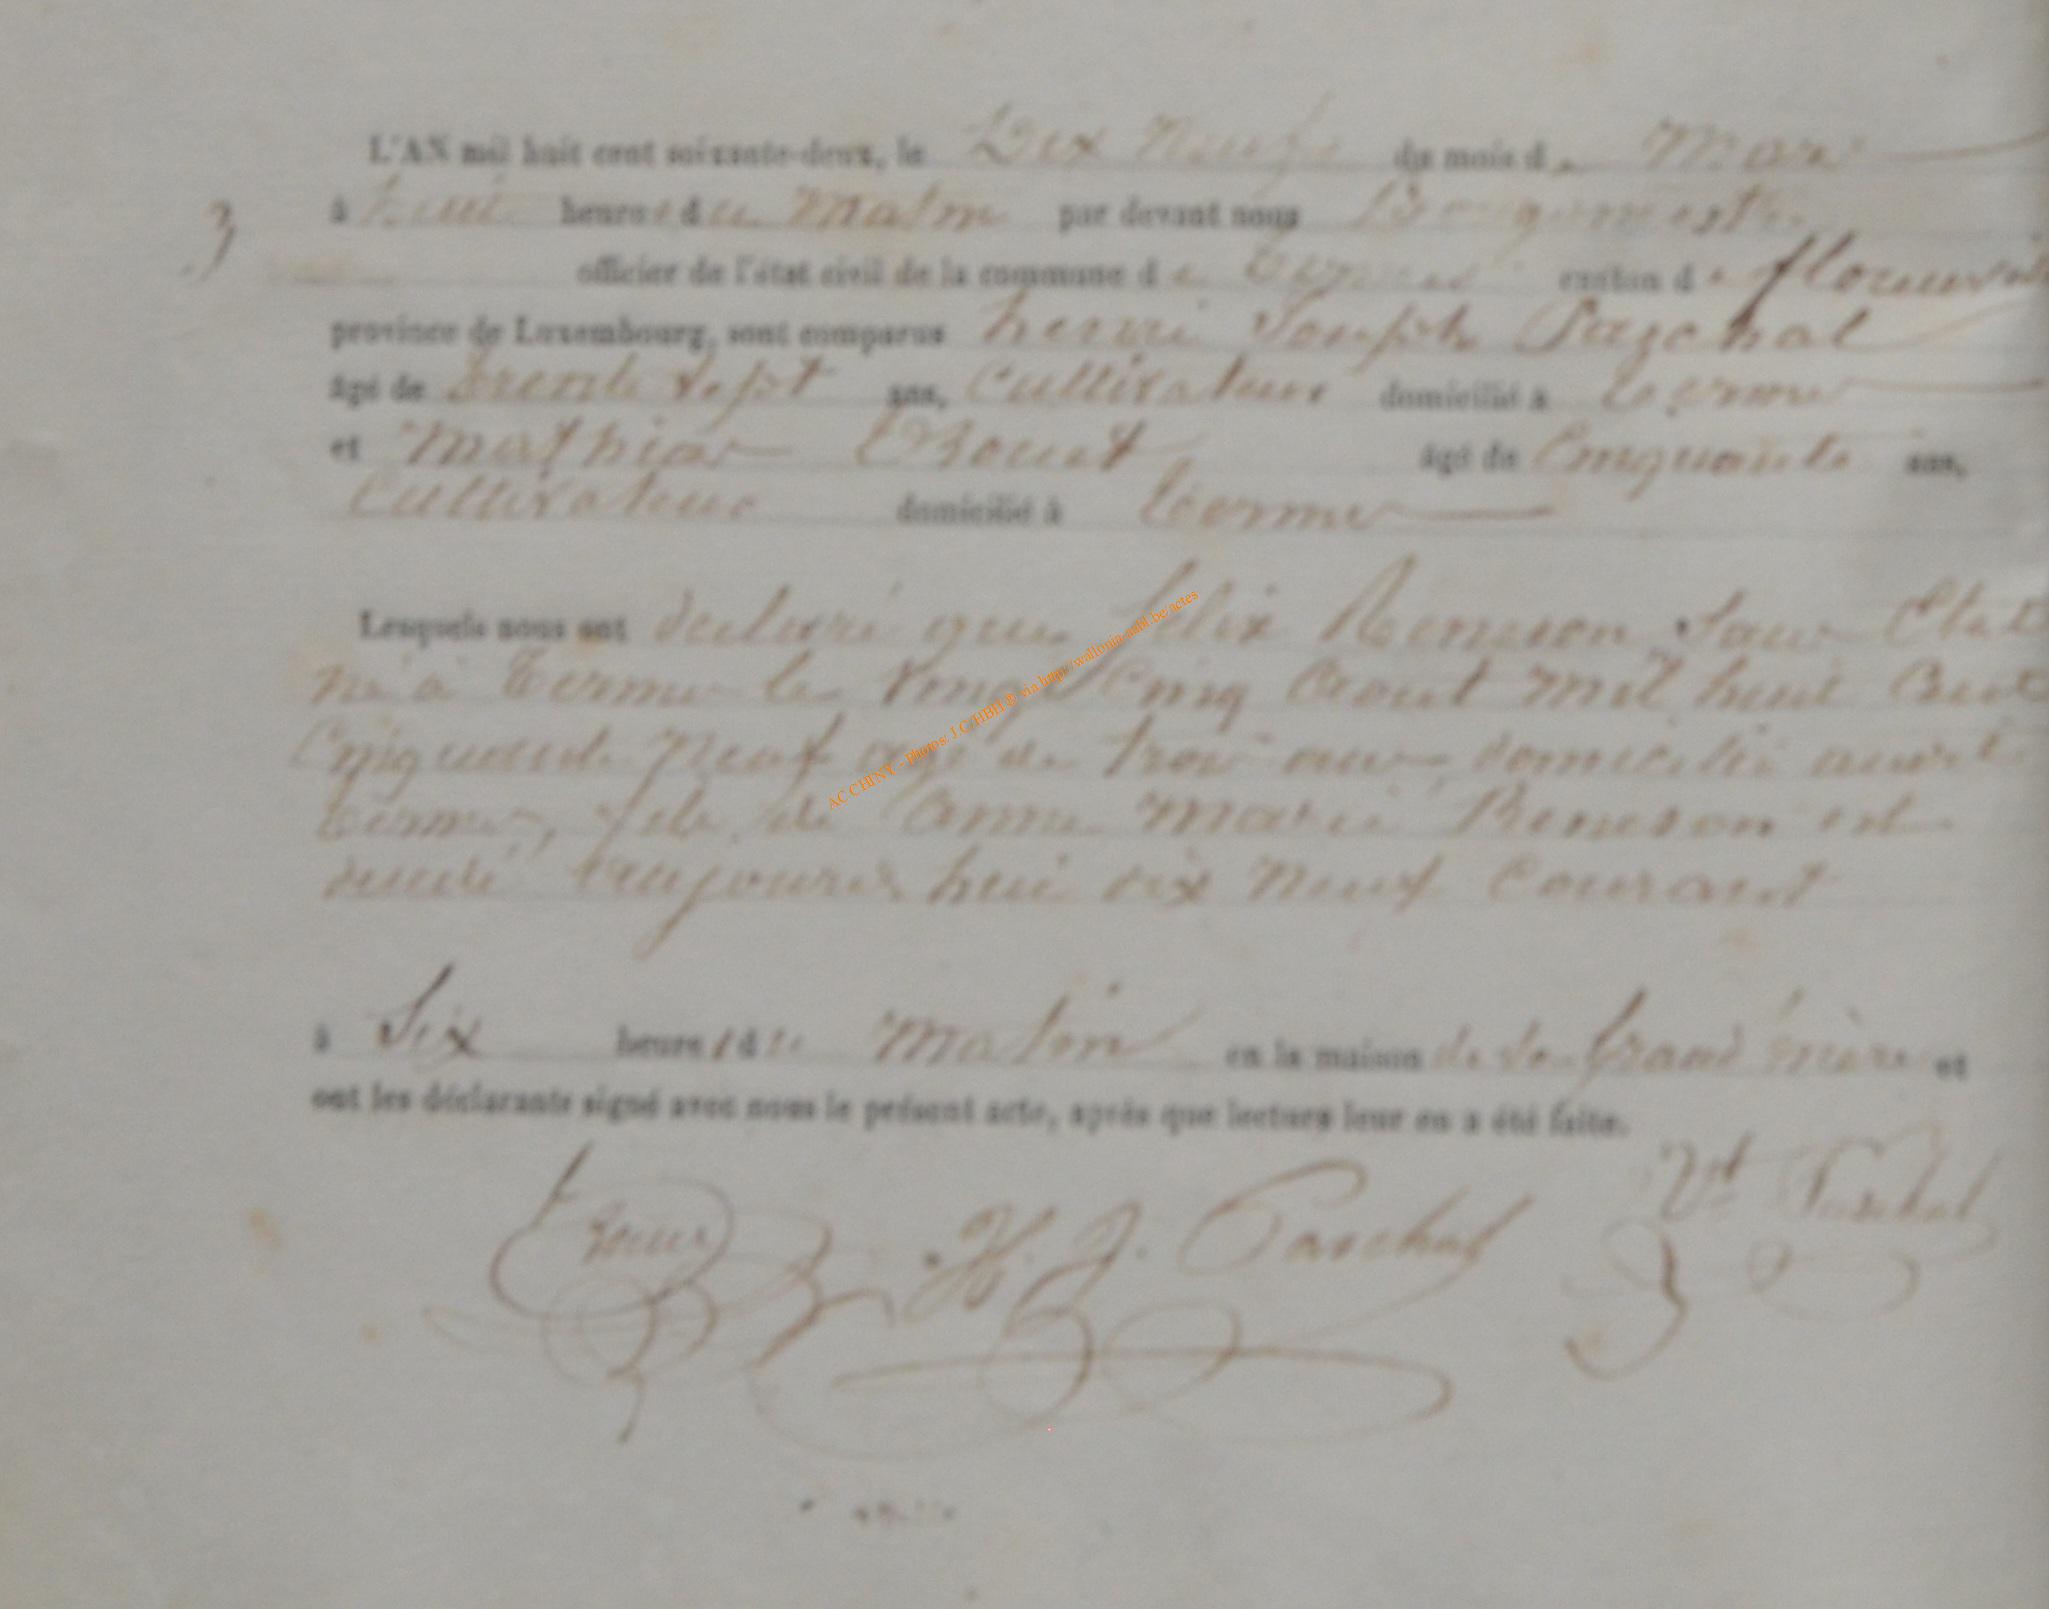 L'AN mil huit cent soixante-deux, le Dix Neuf du mois de Mars
3
à huit heures du Matin par devant nous Bourgmestre
officier de l'état civil de la commune de Termes canton de florenville
province de Luxembourg, sont comparus henri Joseph Paschal
âgé de trente sept ans, Cultivateur domicilié à termes
et Mathias âgé de Cinquante ans,
Cultivateur domicilié à termes
Lesquels nous ont déclaré que félix Renson Sans Etat
né à termes le Vingt Cinq Aout Mil huit Cent
Cinquante Neuf agé de trois ans domicilié audit
termes, fils de Anne Marie Renson est
décédé aujourd hui dix neuf Courant
à Six heures du Matin en la maison de sa Grand mère et
ont les déclarants signé avec nous le présent acte, après que lecture leur en a été faite.
H. J. Paschal
Vt Paschal
AC CHINY - photos: J.C/HBH ® via http://wallonia-asbl.be/actes